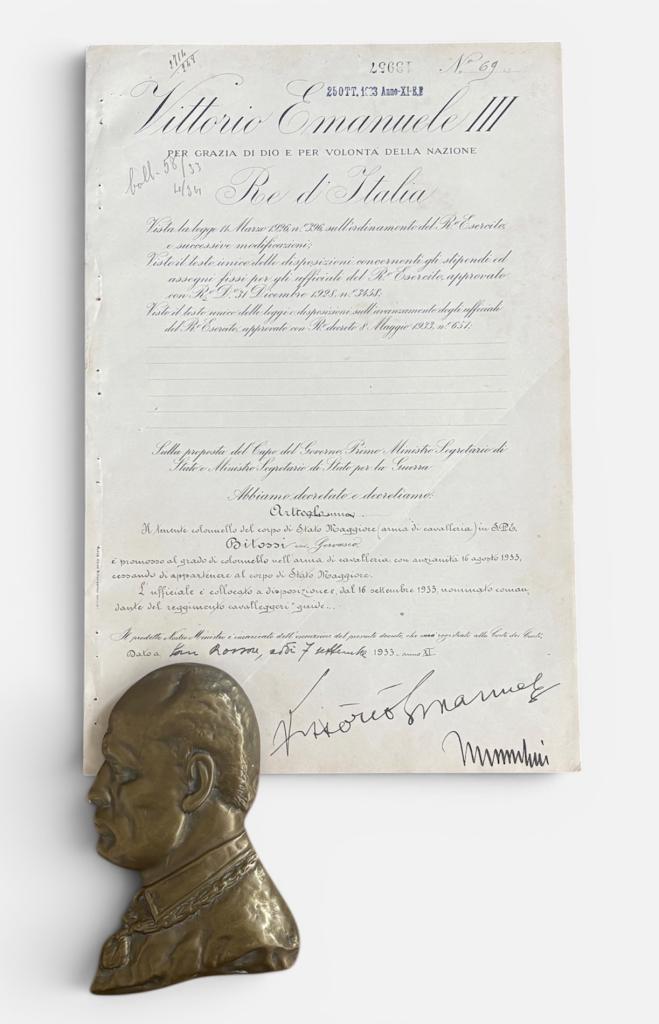 13957 Nº 69
25 OTT. 1933 Anno-XI-E.F.
Vittorio Emanuele III
PER GRAZIA DI DIO E PER VOLONTÀ DELLA NAZIONE
boll. 58/33
Re d'Italia
Vista la legge 11 Marzo 1926, n.º 396, sull'ordinamento del R.º Esercito,
e successive modificazioni;
Visto il testo unico delle disposizioni concernenti gli stipendi ed
assegni fissi per gli ufficiali del R.º Esercito, approvato
con R.º D.º 31 Dicembre 1928, n.º 3458;
Visto il testo unico delle leggi e disposizioni sull'avanzamento degli ufficiali
del R.º Esercito, approvato con R.º decreto 8 Maggio 1933, n.º 651;
Sulla proposta del Capo del Governo, Primo Ministro Segretario di
Stato e Ministro Segretario di Stato per la Guerra
Abbiamo decretato e decretiamo:
Il tenente colonnello del corpo di Stato Maggiore (arma di cavalleria) in S.P.E.
Bitossi cav. Gervasio
è promosso al grado di colonnello nell'arma di cavalleria con anzianità 16 agosto 1933,
cessando di appartenere al corpo di Stato Maggiore.
L'ufficiale è collocato a disposizione e, dal 16 settembre 1933, nominato coman,
dante del reggimento cavalleggeri "guide".
Il predetto Nostro Ministro è incaricato dell'esecuzione del presente decreto, che sarà registrato alla Corte dei Conti.
Dato a San Rossore, addì 7 settembre 1933 - anno XI.
Vittorio Emanuele
Mussolini